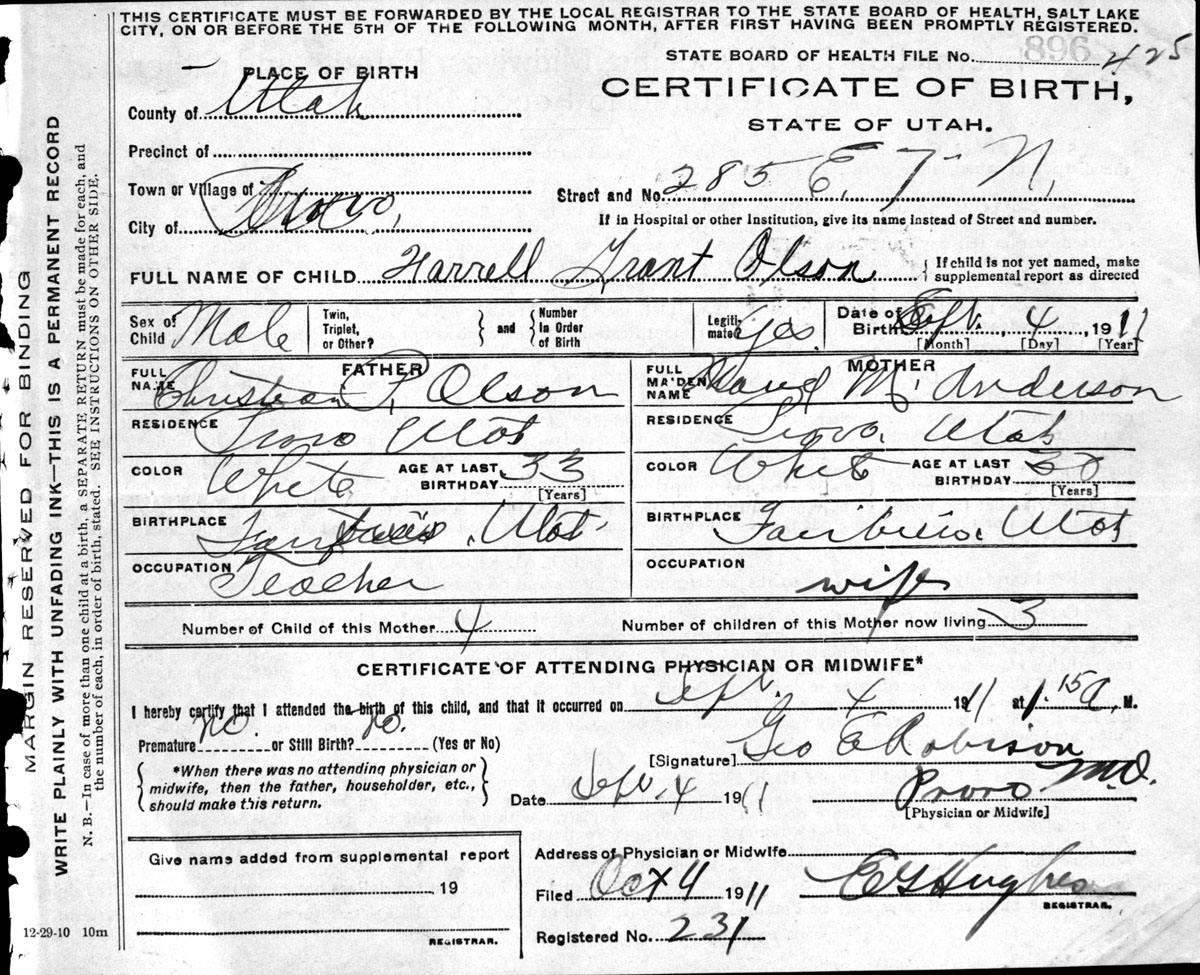 THIS CERTIFICATE MUST BE FORWARDED BY THE LOCAL REGISTRAR TO THE STATE BOARD OF HEALTH, SALT LAKE
CITY, ON OR BEFORE THE 5TH OF THE FOLLOWING MONTH, AFTER FIRST HAVING BEEN PROMPTLY REGISTERED.
STATE BOARD OF HEALTH FILE No. 425
PLACE OF BIRTH
CERTIFICATE OF BIRTH,
STATE OF UTAH.
County of Utah
Precinct of
Town or Village of
City of Provo,
Street and No. 285 E, 7- N,
If in Hospital or other Institution, give its name instead of Street and number.
FULL NAME OF CHILD Harrell Grant Olson
{ If child is not yet named, make
supplemental report as directed
Sex of
Child Male
Twin,
Triplet,
or Other?
} and {
Number
in Order
of Birth
Legiti-
mate? yes.
Date of
Birth Sept. 4, 1911
[Month] [Day] [Year]
FATHER
FULL
NAME Christian P. Olson
RESIDENCE Provo Utah
COLOR White
AGE AT LAST
BIRTHDAY 33
[Years]
BIRTHPLACE Fairview, Utah
OCCUPATION Teacher
MOTHER
FULL
MAIDEN
NAME M. Anderson
RESIDENCE Provo, Utah
COLOR White
AGE AT LAST
BIRTHDAY
[Years]
BIRTHPLACE Fairview, Utah
OCCUPATION
wife
Number of Child of this Mother 4
Number of children of this Mother now living 3
CERTIFICATE OF ATTENDING PHYSICIAN OR MIDWIFE*
I hereby certify that I attended the birth of this child, and that it occurred on Sept. 4 1911 at 1.15 a, M.
Premature no. or Still Birth? no. (Yes or No)
{ *When there was no attending physician or
midwife, then the father, householder, etc.,
should make this return. }
[Signature] Geo E Robison
M.D.
Date Sept. 4 1911
Provo
[Physician or Midwife]
Give name added from supplemental report
19
REGISTRAR.
Address of Physician or Midwife
Filed Oct 4 1911
E G Hughes
REGISTRAR.
Registered No. 231
12-29-10 10m
MARGIN RESERVED FOR BINDING
WRITE PLAINLY WITH UNFADING INK—THIS IS A PERMANENT RECORD
N. B.—In case of more than one child at a birth, a SEPARATE RETURN must be made for each, and
the number of each, in order of birth, stated. SEE INSTRUCTIONS ON OTHER SIDE.